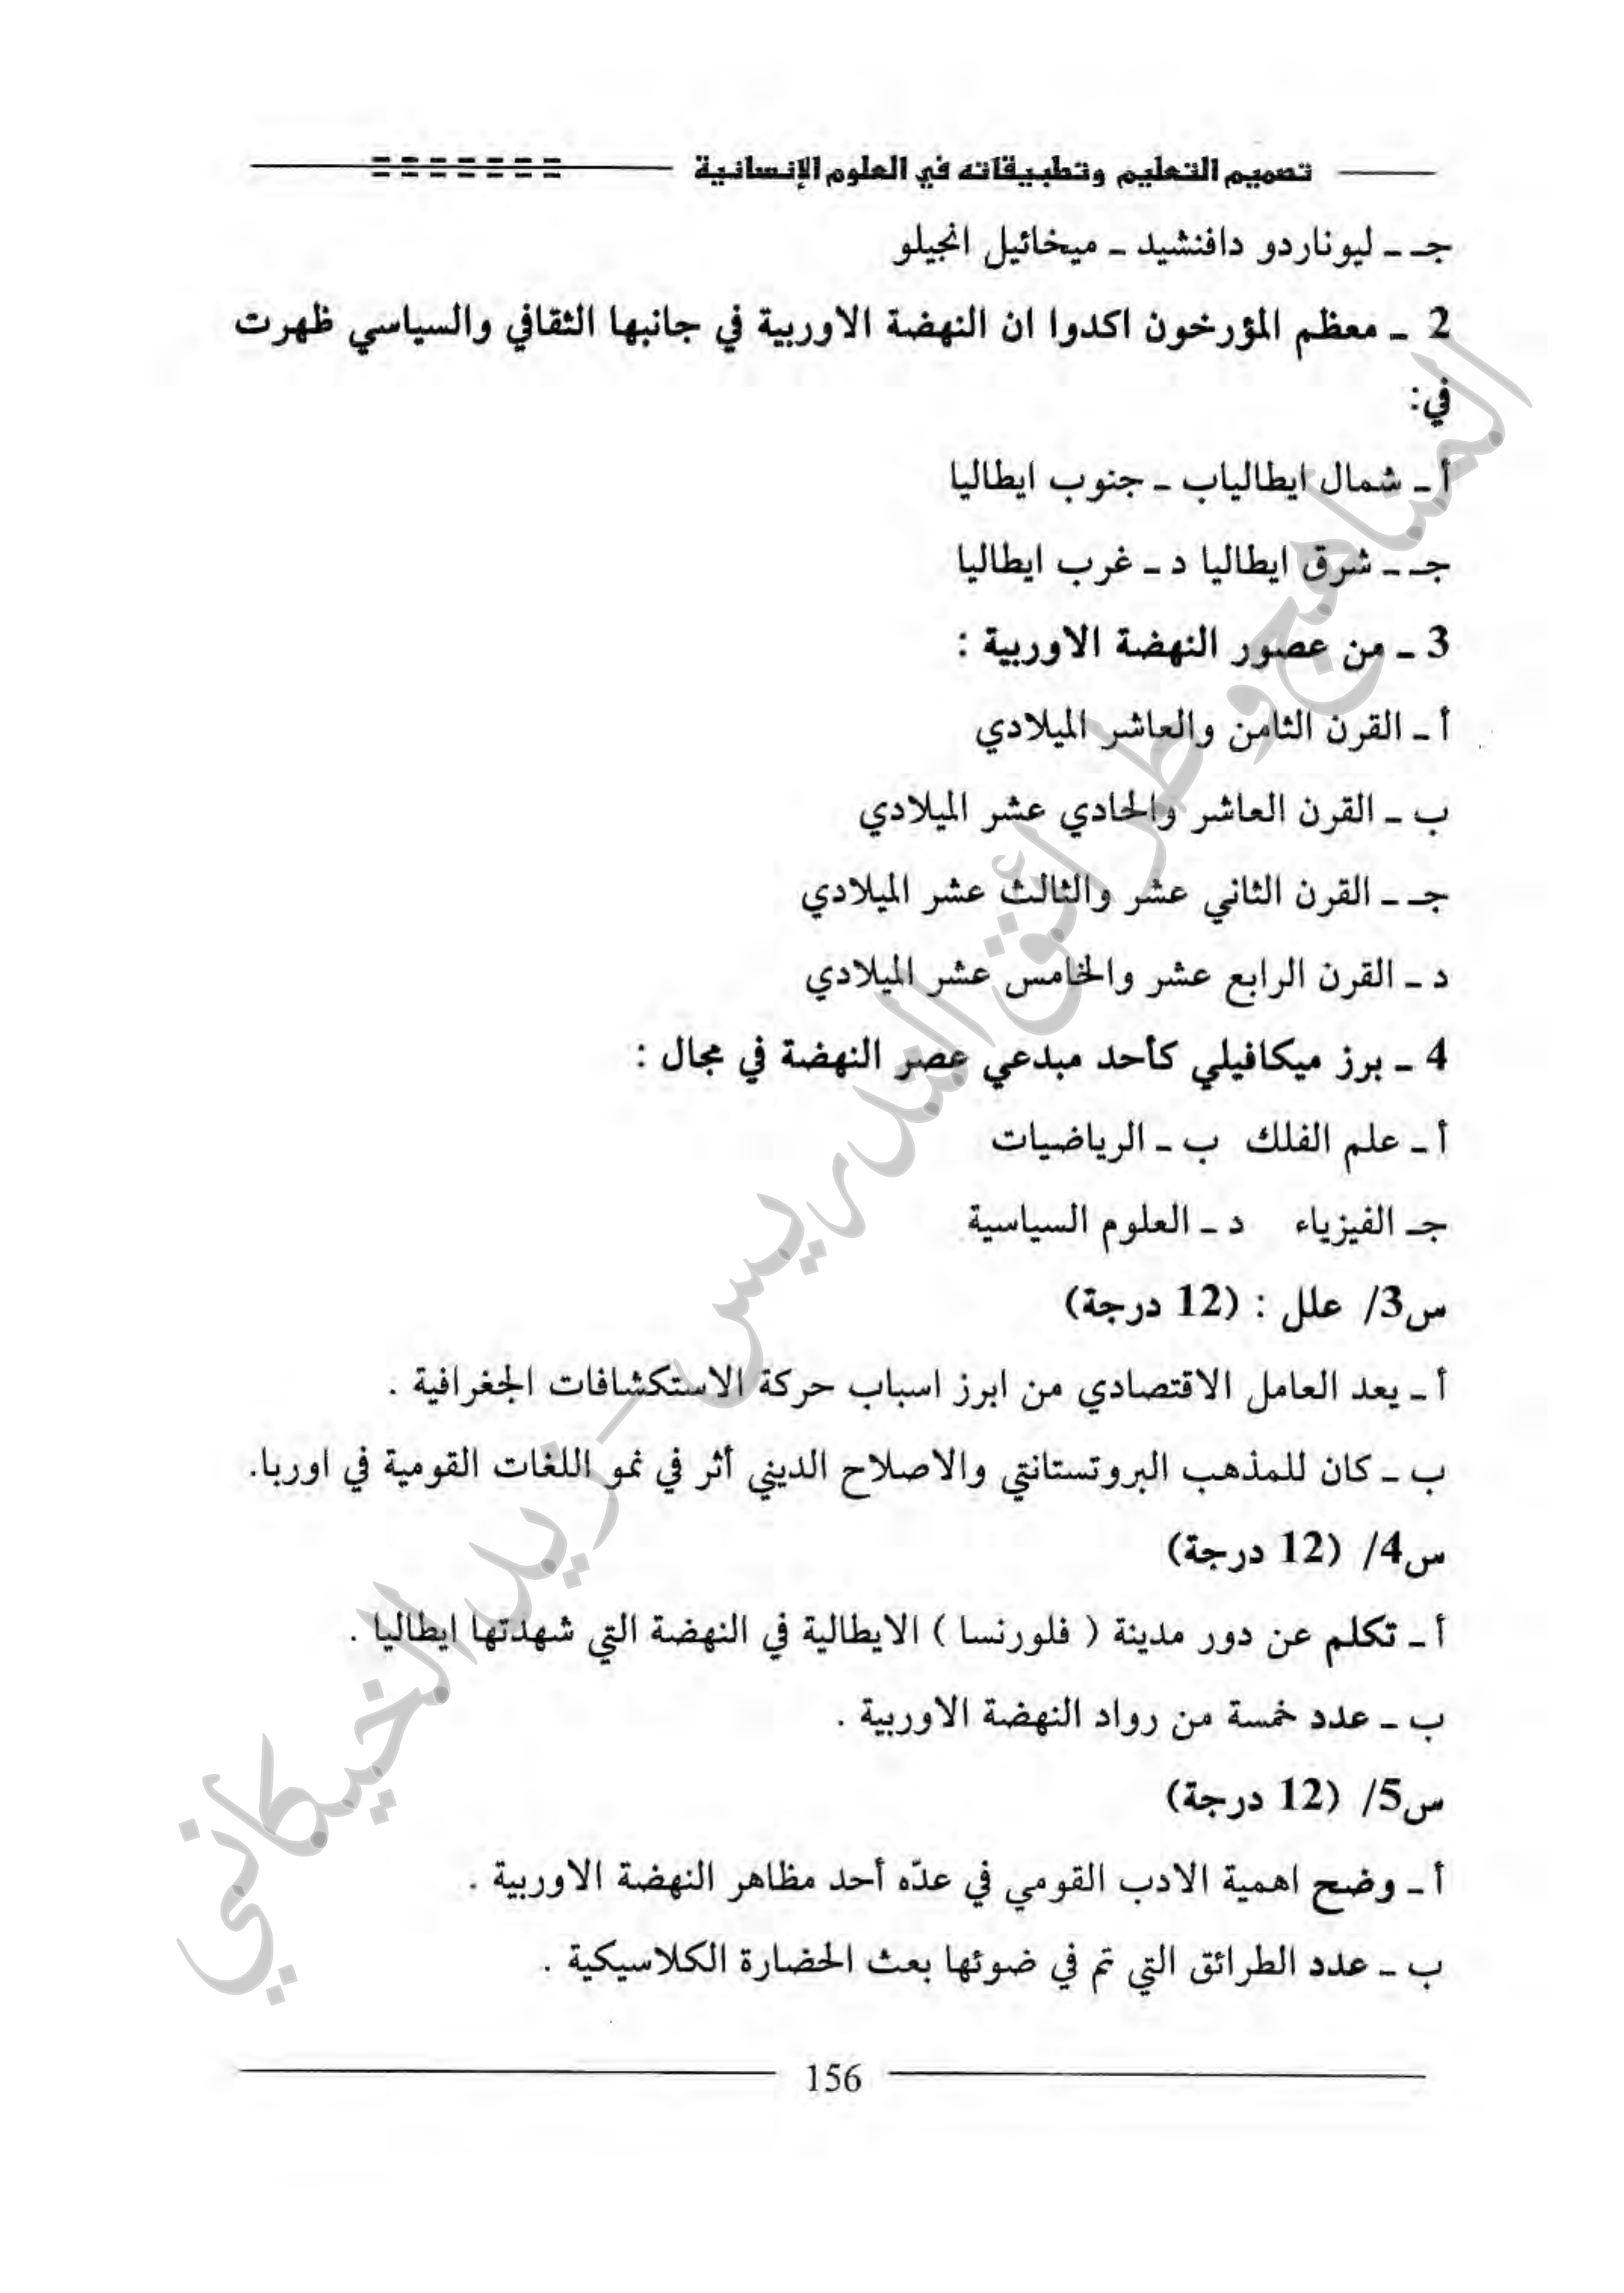 تصميم التعليم وتطبيقاته في العلوم الإنسانية
جـ ـ ليوناردو دافنشيد ـ ميخائيل انجيلو
2 ـ معظم المؤرخون اكدوا ان النهضة الاوربية في جانبها الثقافي والسياسي ظهرت
في:
أ ـ شمال ايطالياب ـ جنوب ايطاليا
جـ ـ شرق ايطاليا د ـ غرب ايطاليا
3 ـ من عصور النهضة الاوربية :
أ ـ القرن الثامن والعاشر الميلادي
ب ـ القرن العاشر والحادي عشر الميلادي
جـ ـ القرن الثاني عشر والثالث عشر الميلادي
د ـ القرن الرابع عشر والخامس عشر الميلادي
4 ـ برز ميكافيلي كأحد مبدعي عصر النهضة في مجال :
أ ـ علم الفلك ب ـ الرياضيات
جـ الفيزياء د ـ العلوم السياسية
س3/ علل : (12 درجة)
أ ـ يعد العامل الاقتصادي من ابرز اسباب حركة الاستكشافات الجغرافية .
ب ـ كان للمذهب البروتستانتي والاصلاح الديني أثر في نمو اللغات القومية في اوربا.
س4/ (12 درجة)
أ ـ تكلم عن دور مدينة ( فلورنسا ) الايطالية في النهضة التي شهدتها ايطاليا .
ب ـ عدد خمسة من رواد النهضة الاوربية .
س5/ (12 درجة)
أ ـ وضح اهمية الادب القومي في عدّه أحد مظاهر النهضة الاوربية .
ب ـ عدد الطرائق التي تم في ضوئها بعث الحضارة الكلاسيكية .
156
المناهج وطرائق التدريس - زيد الخيكاني